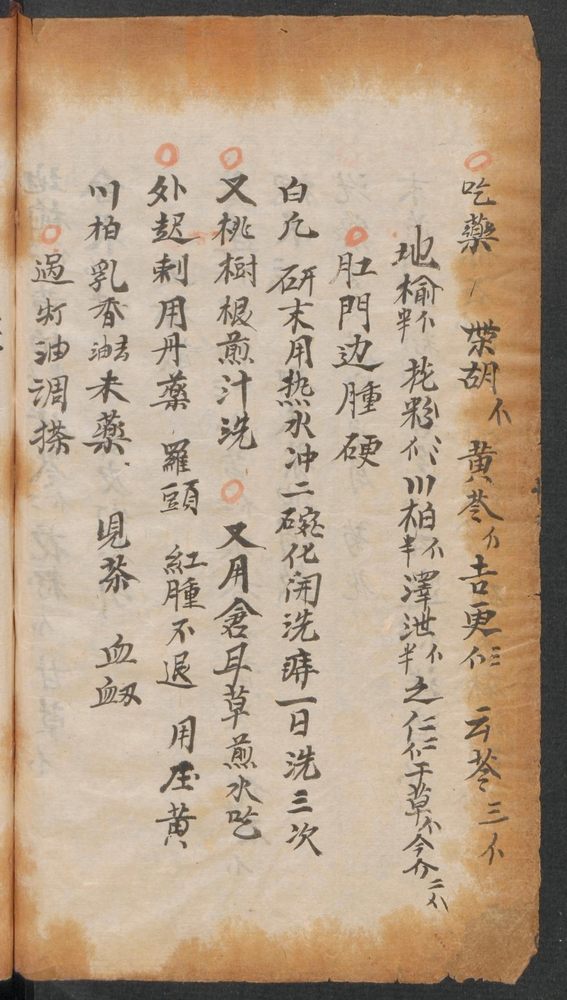 吃藥 柴胡 黄芩 吉更 云苓三
地榆半 花粉 川柏半 澤泄半 之仁 干草
肛門边腫硬
白凡 研末用热水冲二碗化開洗痔一日洗三次
又桃樹根煎汁洗 又用倉耳草煎水吃
外起刺用丹藥 羅頭 紅腫不退 用 黄
川柏乳香去油末藥 見茶 血
過灯油調搽